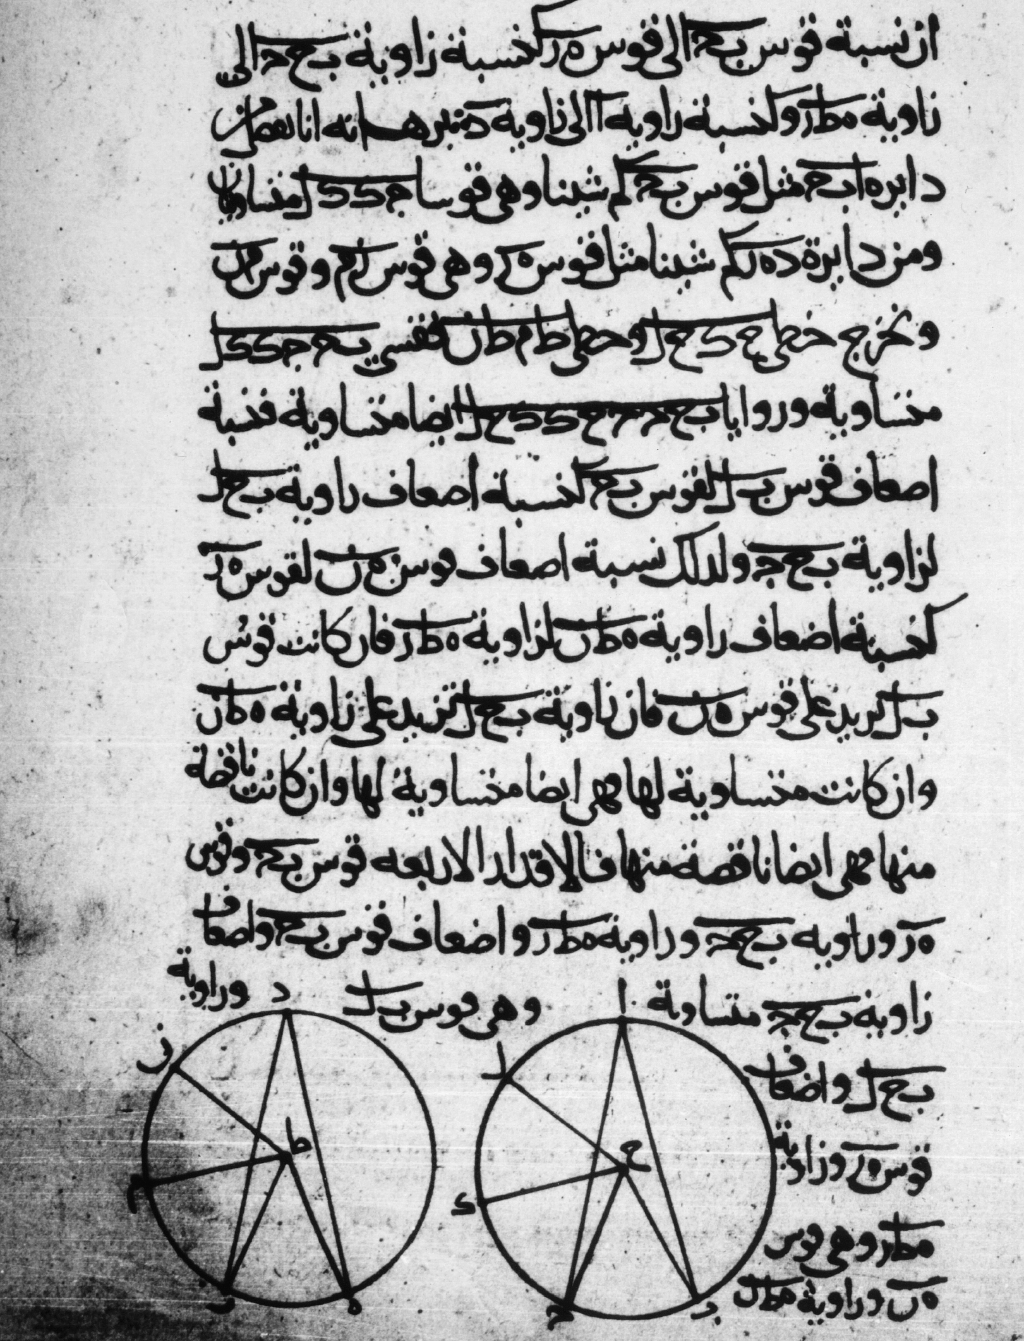 ان نسبة قوس بج الى قوس ه ر كنسبة زاوية بح ج الى
زاوية ه ط ر وكنسبة زاوية ا الى زاوية د انه انا نفصل من
دايرة ا ب ج مثل قوس بج كم شينا وهى قوسا ج ك ك ل متساويتان
ومن دايرة د ه ر كم شينا مثل قوس ه ر وهى قوس ر م وقوس م ن
ونخرج خطى ح ك ح ل وخطى ط م ط ن فقسي بج ج ك ك ل
متساوية وزوايا ب ح ج ج ح ك ك ح ل ايضا متساوية فنسبة
اضعاف قوس ب ل لقوس بج كنسبة اضعاف زاوية ب ح ل
لزاوية ب ح ج ولذلك نسبة اضعاف قوس ه ن لقوس ه ر
كنسبة اضعاف زاوية ه ط ن لزاوية ه ط ر فان كانت قوس
ب ل تزيد على قوس ه ن فان زاوية ب ح ل تزيد على زاوية ه ط ن
وان كانت متساوية لها فهى ايضا متساوية لها وان كانت ناقصة
منها فهى ايضا ناقصة منها فالاقدار الاربعه قوس بج وقوس
ه ر وزاويه ب ح ج وزاوية ه ط ر واضعاف قوس بج واضعاف
زاوية ب ح ج متساوية وهى قوس ب ل وزاوية
ب ح ل واضعاف
قوس ه ر وزاوية
ه ط ر وهى قوس
ه ن وزاوية ه ط ن
ا
ل
ك
ج
ب
ح
د
ن
م
ر
ه
ط